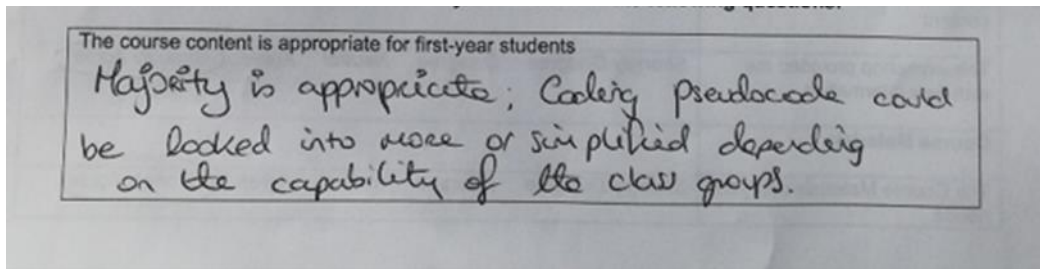 following questions.
The course content is appropriate for first-year students
Majority is appropriate; Coding pseudocode could
be looked into more or simplified depending
on the capability of the class groups.